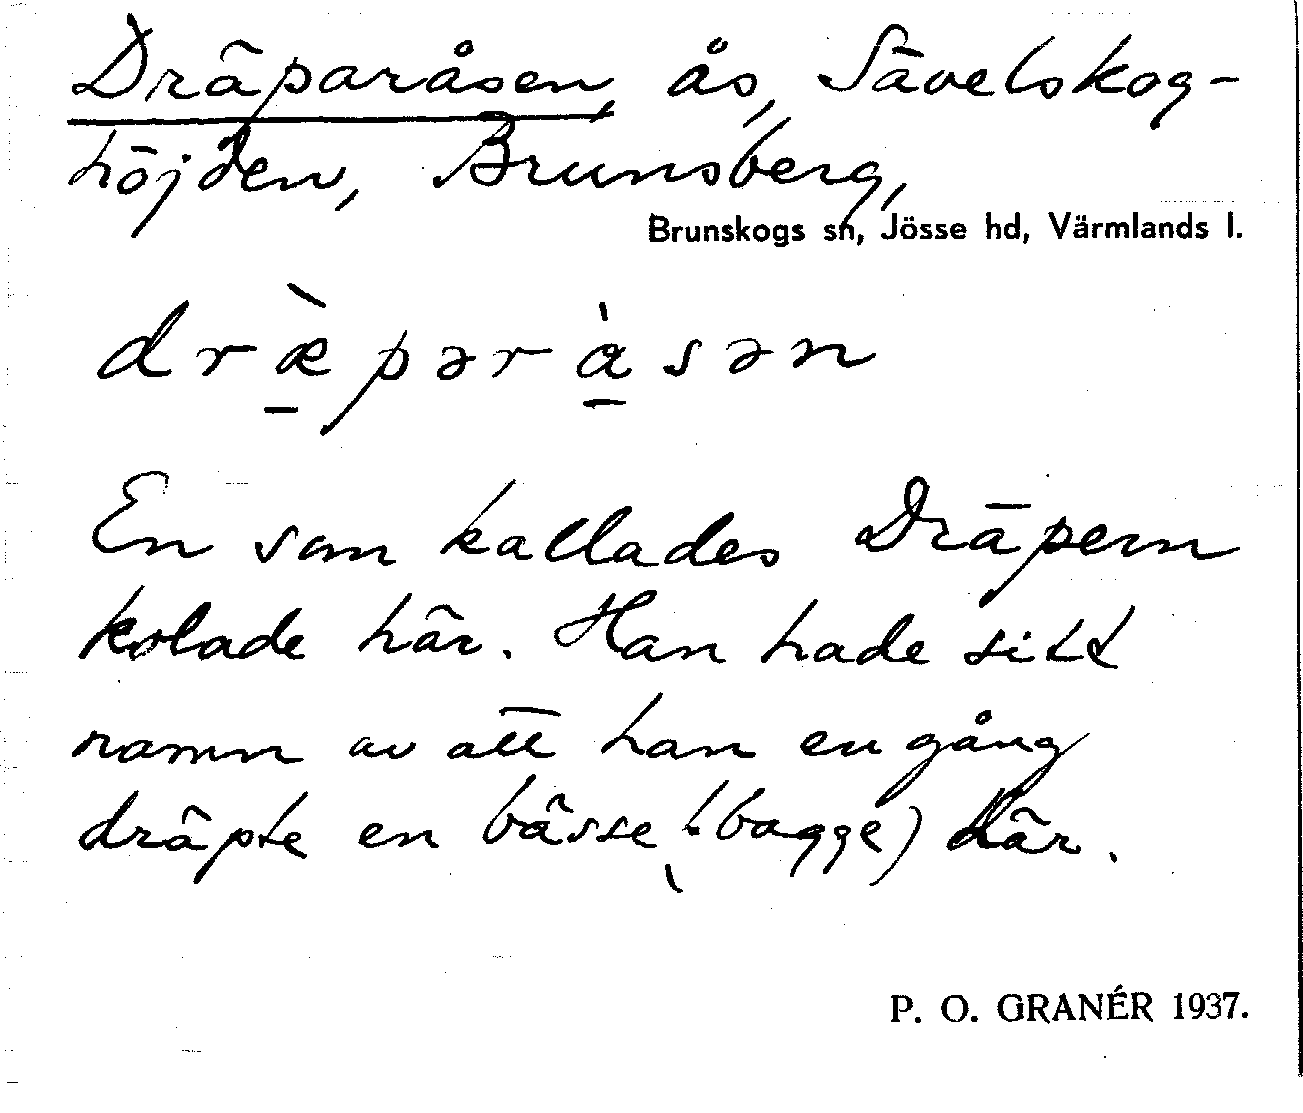 Dräparåsen, ås, Sävelskog-
höjden, Brunsberg,
Brunskogs sn, Jösse hd, Värmlands l.
dræ̱̀pərɑ̱̀sən
En som kallades Dräpern
kolade här. Han hade sitt
namn av att han en gång
dräpte en bässe (bagge) där.
P. O. GRANÉR 1937.